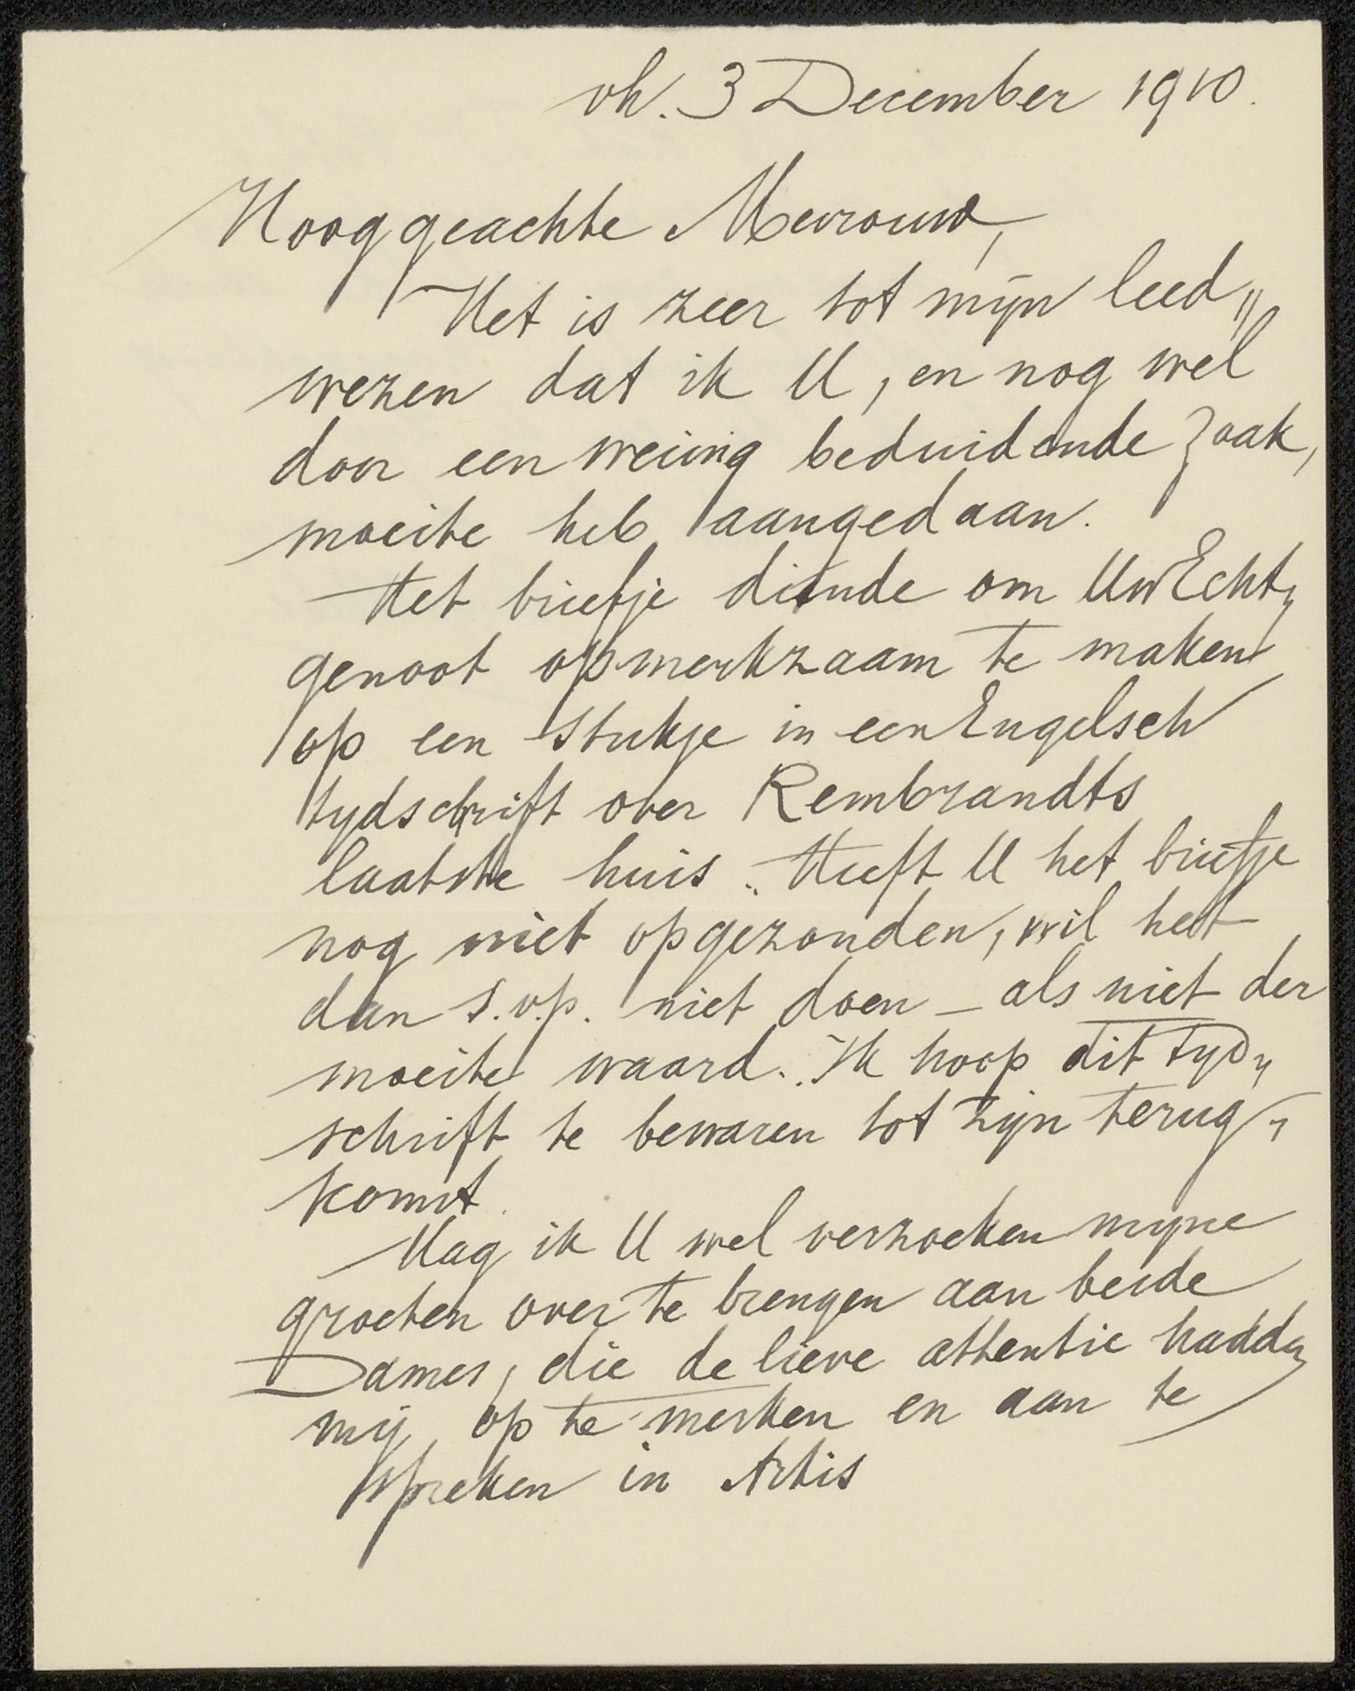 vh. 3 December 1910.
Hooggeachte Mevrouw,
Het is zeer tot mijn leed„
wezen dat ik U, en nog wel
door een weinig beduidende zaak,
moeite heb aangedaan.
Het briefje diende om Uw Echt„
genoot opmerkzaam te maken
op een stukje in een Engelsch
tydschrift over Rembrandts
laatste huis. Heeft U het briefje
nog niet opgezonden, wil het
dan s.v.p. niet doen – als niet der
moeite waard. Ik hoop dit tyd„
schrift te bewaren tot zijn terug„
komst.
Mag ik U wel verzoeken myne
groeten over te brengen aan beide
Dames, die de lieve attentie hadden
mij op te merken en aan te
spreken in Artis